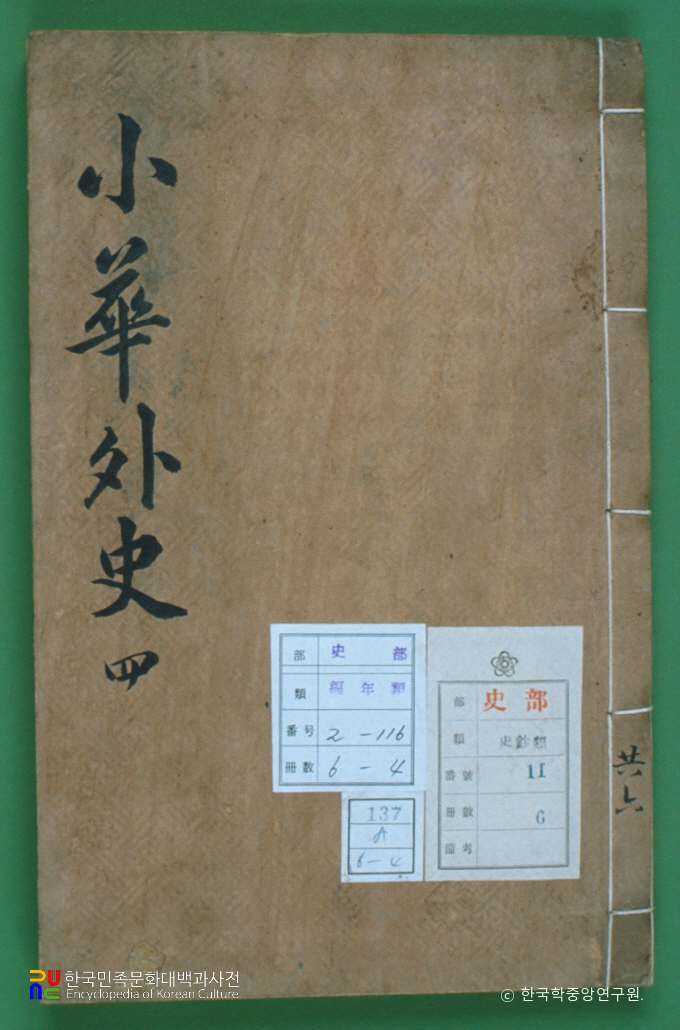 小華外史 四
共六
部 史部
類 編年類
番号 2-116
冊數 6-4
137
A
6-4
部 史部
類 史鈔類
番號 11
冊數 6
備考
한국민족문화대백과사전
Encyclopedia of Korean Culture
© 한국학중앙연구원.